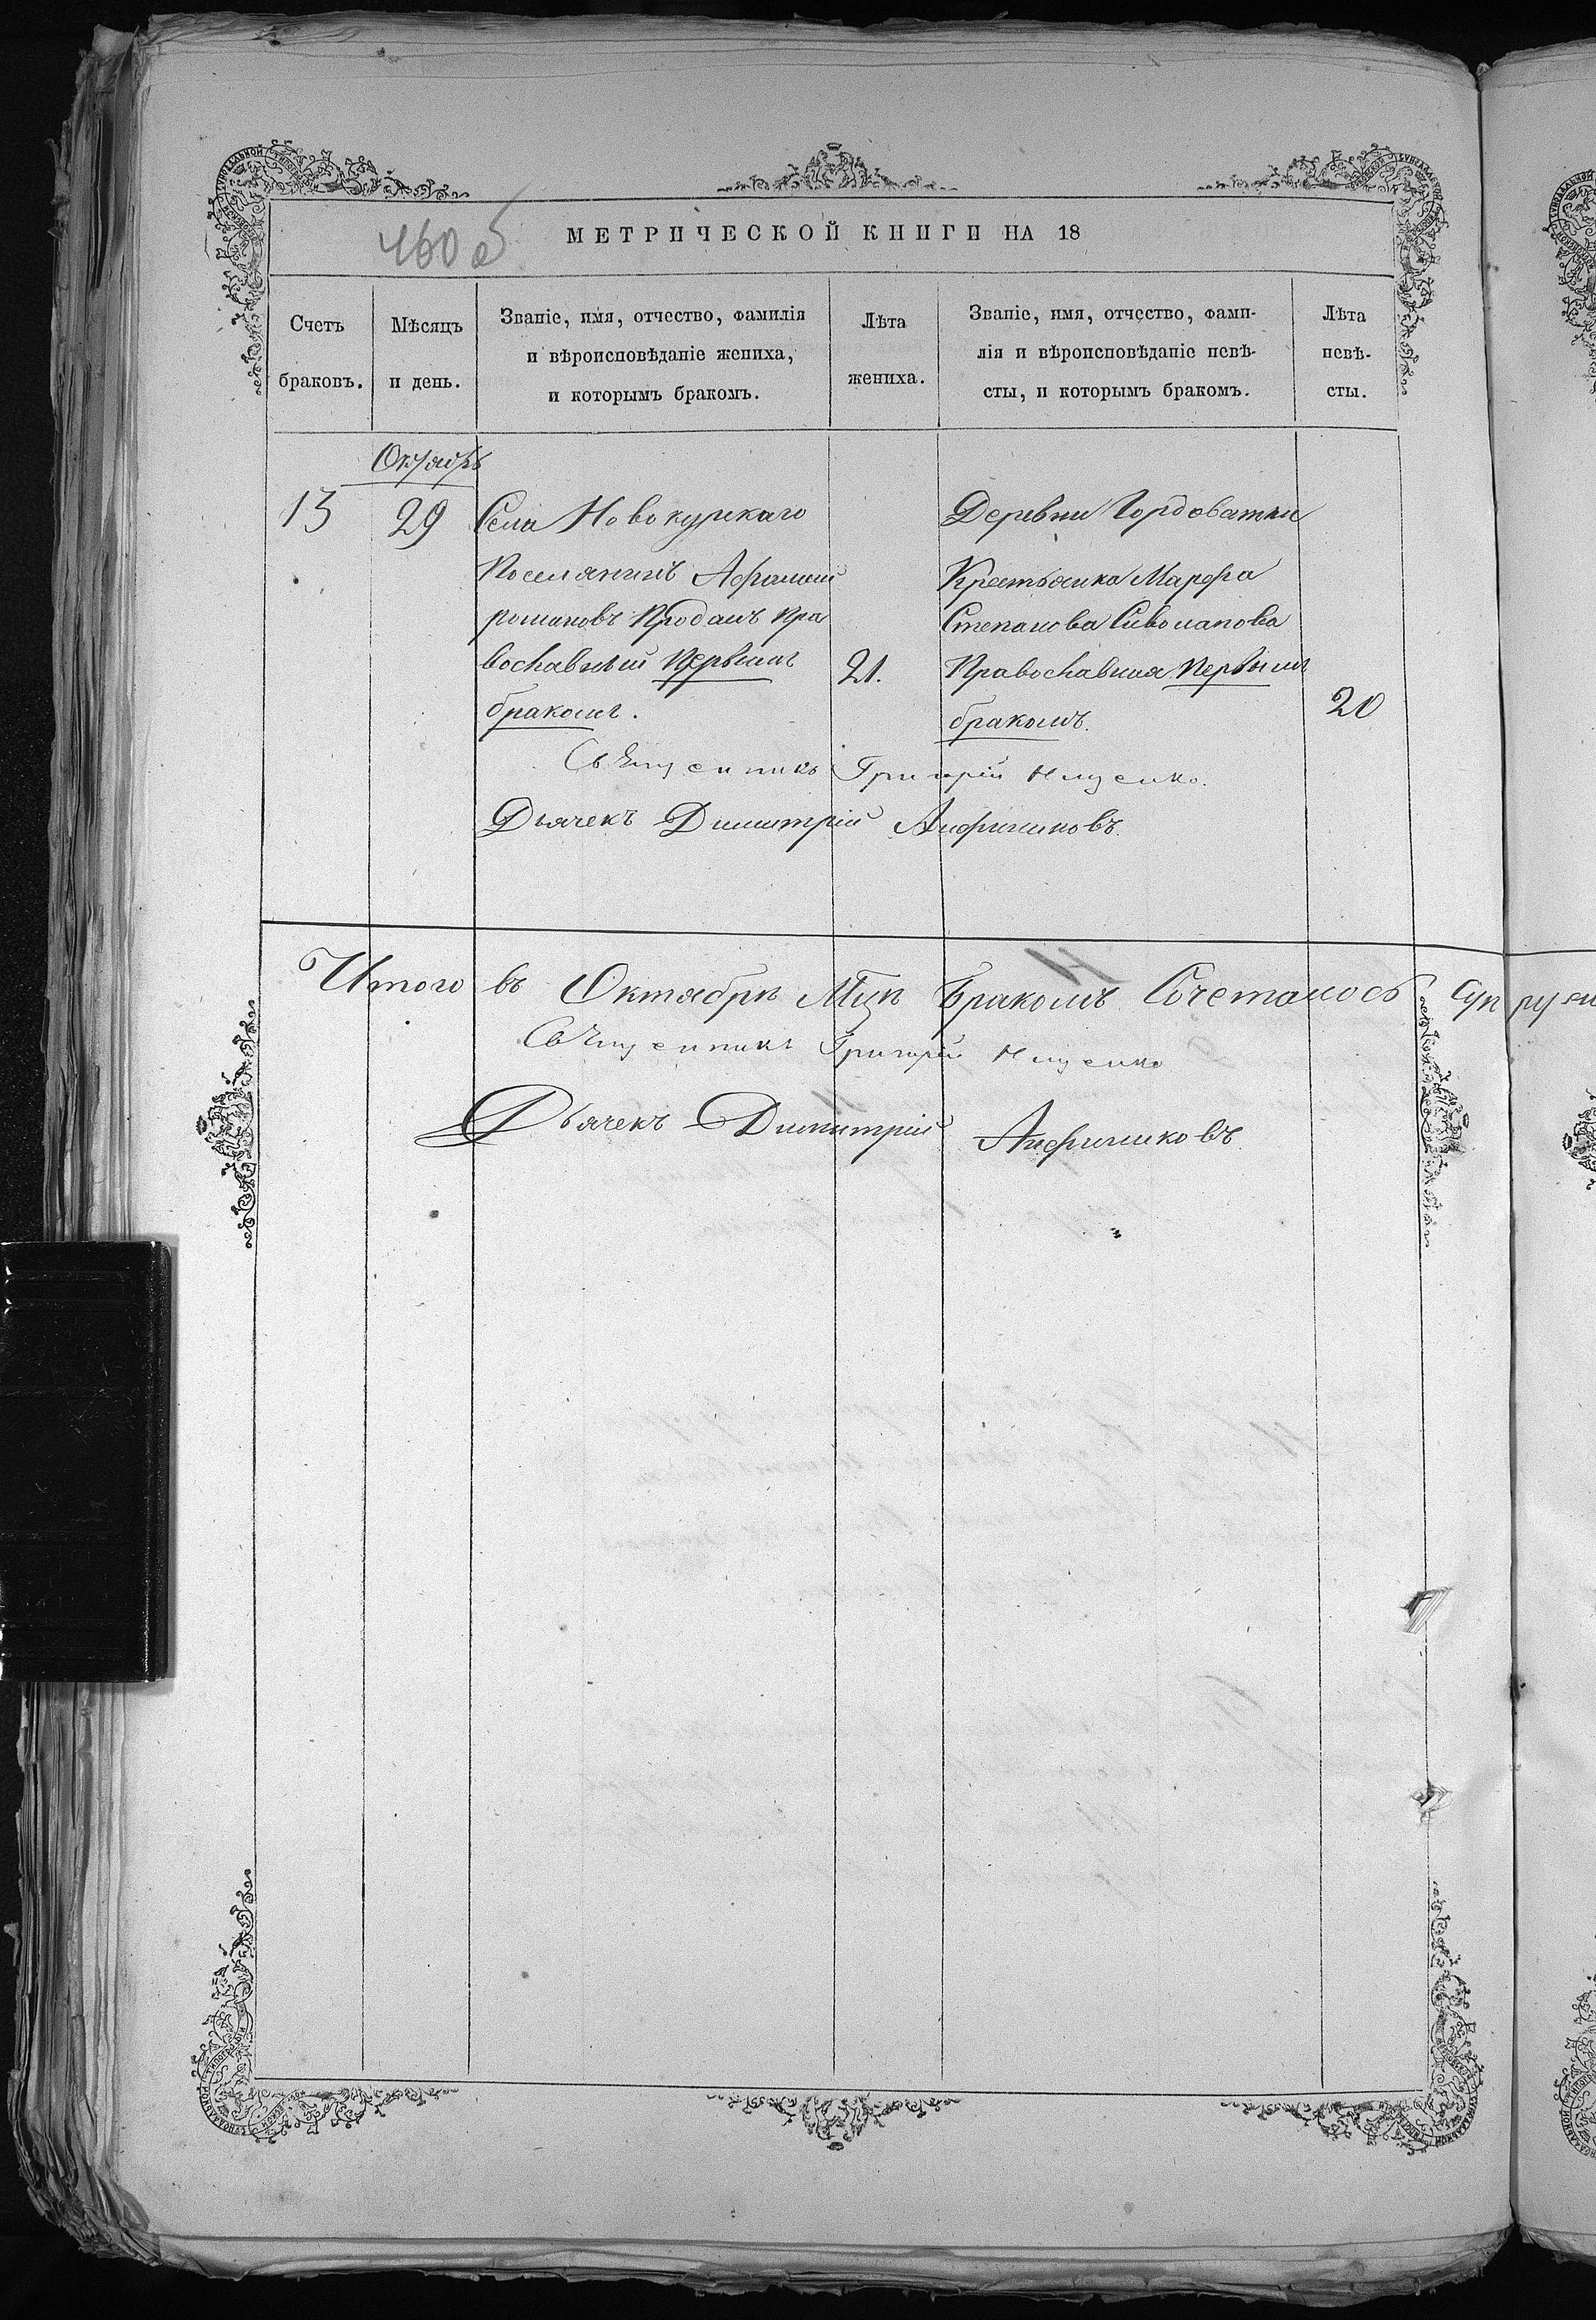 460 об
МЕТРИЧЕСКОЙ КНИГИ НА 18
Счетъ браковъ.
Мѣсяцъ и день.
Званіе, имя, отчество, фамилія
и вѣроисповѣданіе жениха,
и которымъ бракомъ.
Лѣта жениха.
Званіе, имя, отчество, фами-
лія и вѣроисповѣданіе невѣ-
сты, и которымъ бракомъ.
Лѣта невѣ-
сты.
Октябрь
13
29
Села Новокурскаго
Поселянинъ Афанасий
романовъ Проданъ Пра
вославный Первымъ
бракомъ.
21.
Деревни Гордоватки
Крестьянка Марфа
Степанова Сиволапова
Православная Первымъ
бракомъ.
20
Священникъ Григорій Ищенко.
Дьячекъ Димитрій Анфиногеновъ
Итого въ Октябрѣ Мцѣ Бракомъ Сочеталось
Священникъ Григорій Ищенко
Дьячекъ Димитрій